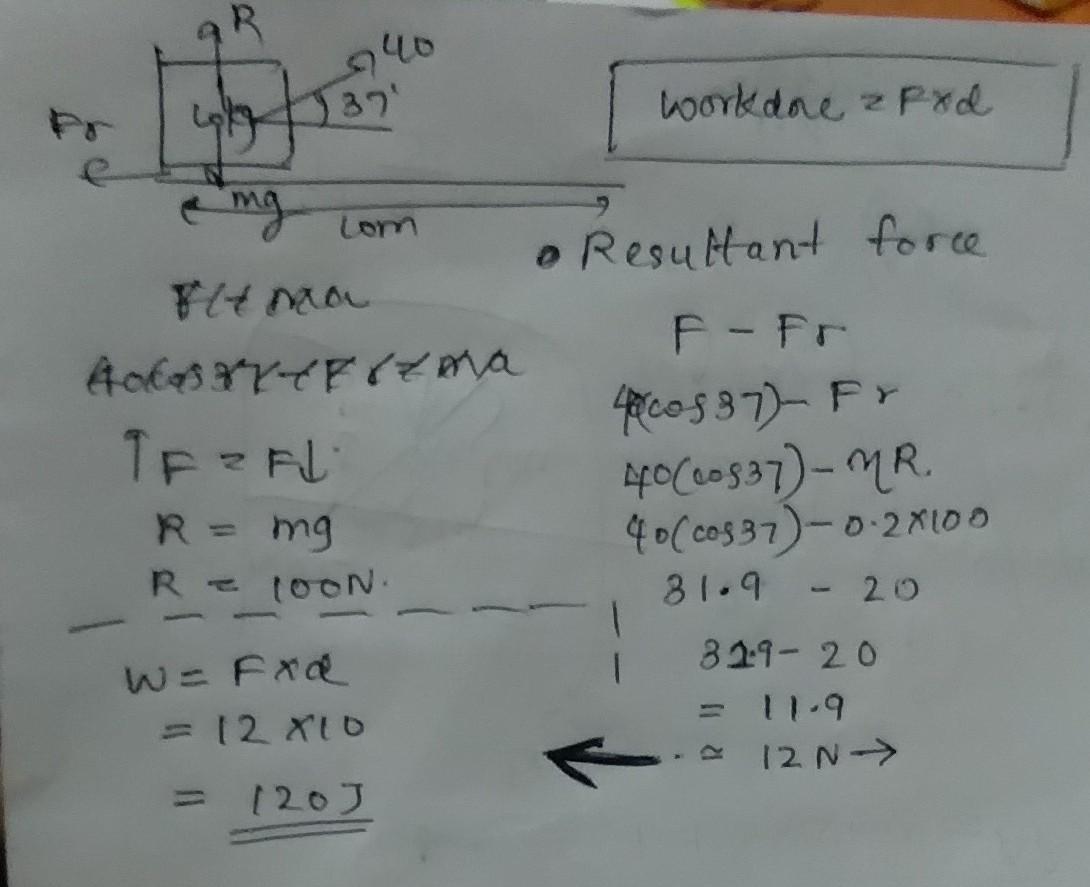 R
40
37°
10kg
Fr
mg
10m
workdone = F×d
R = mg
↑F = F↓
R = mg
R = 100N.
W = F×d
= 12 ×10
= 120J
• Resultant force
F - Fr
40(cos37) - Fr
40(cos37) - ηR.
40(cos37) - 0.2×100
31.9 - 20
31.9 - 20
= 11.9
≃ 12N →